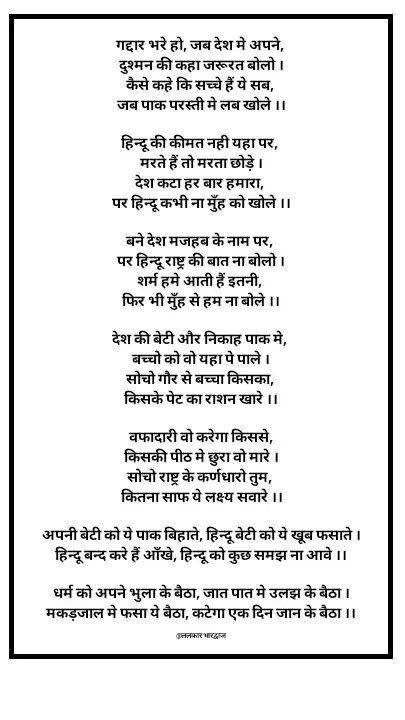 गद्दार भरे हो, जब देश मे अपने,
दुश्मन की कहा जरूरत बोलो ।
कैसे कहे कि सच्चे हैं ये सब,
जब पाक परस्ती मे लब खोले ।।
हिन्दू की कीमत नही यहा पर,
मरते हैं तो मरता छोड़े ।
देश कटा हर बार हमारा,
पर हिन्दू कभी ना मुँह को खोले ।।
बने देश मजहब के नाम पर,
पर हिन्दू राष्ट्र की बात ना बोलो ।
शर्म हमे आती हैं इतनी,
फिर भी मुँह से हम ना बोले ।।
देश की बेटी और निकाह पाक मे,
बच्चो को वो यहा पे पाले ।
सोचो गौर से बच्चा किसका,
किसके पेट का राशन खारे ।।
वफादारी वो करेगा किससे,
किसकी पीठ मे छुरा वो मारे ।
सोचो राष्ट्र के कर्णधारो तुम,
कितना साफ ये लक्ष्य सवारे ।।
अपनी बेटी को ये पाक बिहाते, हिन्दू बेटी को ये खूब फसाते ।
हिन्दू बन्द करे हैं आँखे, हिन्दू को कुछ समझ ना आवे ।।
धर्म को अपने भुला के बैठा, जात पात मे उलझ के बैठा ।
मकड़जाल मे फसा ये बैठा, कटेगा एक दिन जान के बैठा ।।
@ललकार भारद्वाज